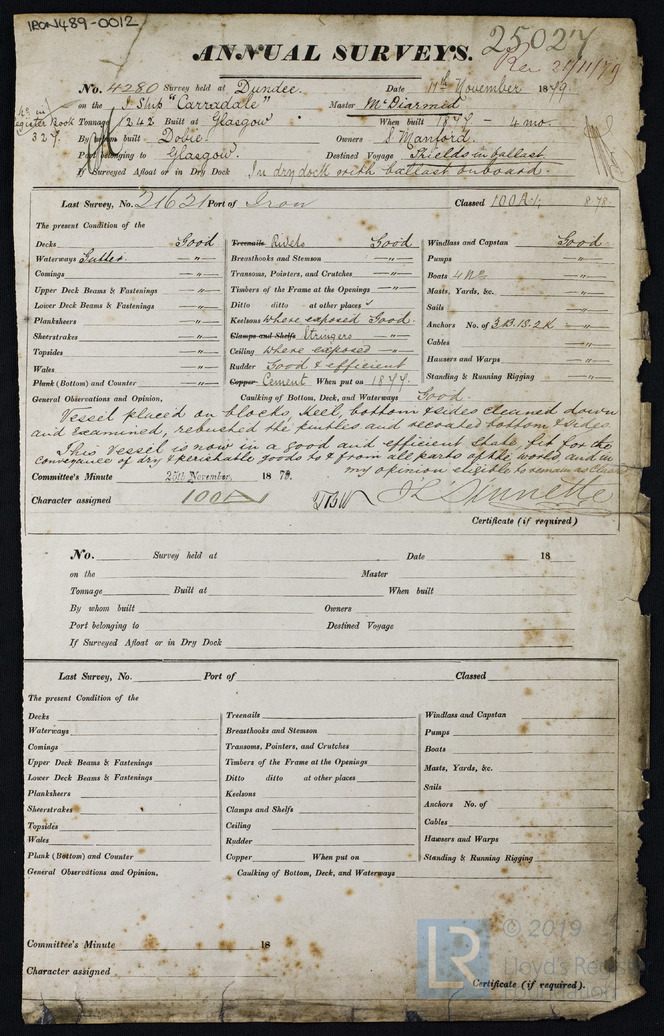 IRON489-0012
25027
ANNUAL SURVEYS.
Rec 21/11/79
No. 4280 Survey held at Dundee Date 11th November 1879.
on the Ship "Carradale" Master McDiarmid
No. in Register Book 327.
Tonnage 1242 Built at Glasgow When built 1877 - 4 mo.
By whom built Dobie Owners S. Manford.
Port belonging to Glasgow. Destined Voyage Shields in ballast
If Surveyed Afloat or in Dry Dock In dry dock with ballast onboard.
Last Survey, No. 21621 Port of Iron Classed 100A1 8.78.
The present Condition of the
Decks Good Treenails Rivets Good Windlass and Capstan Good
Waterways Gutter " Breasthooks and Stemson " Pumps "
Comings " Transoms, Pointers, and Crutches " Boats 4 No "
Upper Deck Beams & Fastenings " Timbers of the Frame at the Openings " Masts, Yards, &c. "
Lower Deck Beams & Fastenings " Ditto ditto at other places " Sails "
Planksheers " Keelsons where exposed Good. Anchors No. of 3.B.1S.2K "
Sheerstrakes " Clamps and Shelfs Stringers " Cables "
Topsides " Ceiling where exposed " Hawsers and Warps "
Wales " Rudder Good & efficient Standing & Running Rigging "
Plank (Bottom) and Counter " Copper Cement When put on 1877.
General Observations and Opinion, Caulking of Bottom, Deck, and Waterways Good.
Vessel placed on blocks, Keel, bottom & sides cleaned down
and examined, rebushed the pintles and recoated bottom & sides.
This Vessel is now in a good and efficient state, fit for the
conveyance of dry & perishable goods to & from all parts of the world and in
my opinion eligible to remain as Classed
Committee's Minute 25th November, 1879.
Character assigned 100A1
Certificate (if required)
No. Survey held at Date 18
on the Master
Tonnage Built at When built
By whom built Owners
Port belonging to Destined Voyage
If Surveyed Afloat or in Dry Dock
Last Survey, No. Port of Classed
The present Condition of the
Decks Treenails Windlass and Capstan
Waterways Breasthooks and Stemson Pumps
Comings Transoms, Pointers, and Crutches Boats
Upper Deck Beams & Fastenings Timbers of the Frame at the Openings Masts, Yards, &c.
Lower Deck Beams & Fastenings Ditto ditto at other places Sails
Planksheers Keelsons Anchors No. of
Sheerstrakes Clamps and Shelfs Cables
Topsides Ceiling Hawsers and Warps
Wales Rudder Standing & Running Rigging
Plank (Bottom) and Counter Copper When put on
General Observations and Opinion, Caulking of Bottom, Deck, and Waterways
Committee's Minute 18
Character assigned
Certificate (if required).
LR © 2019
Lloyd's Register
Foundation